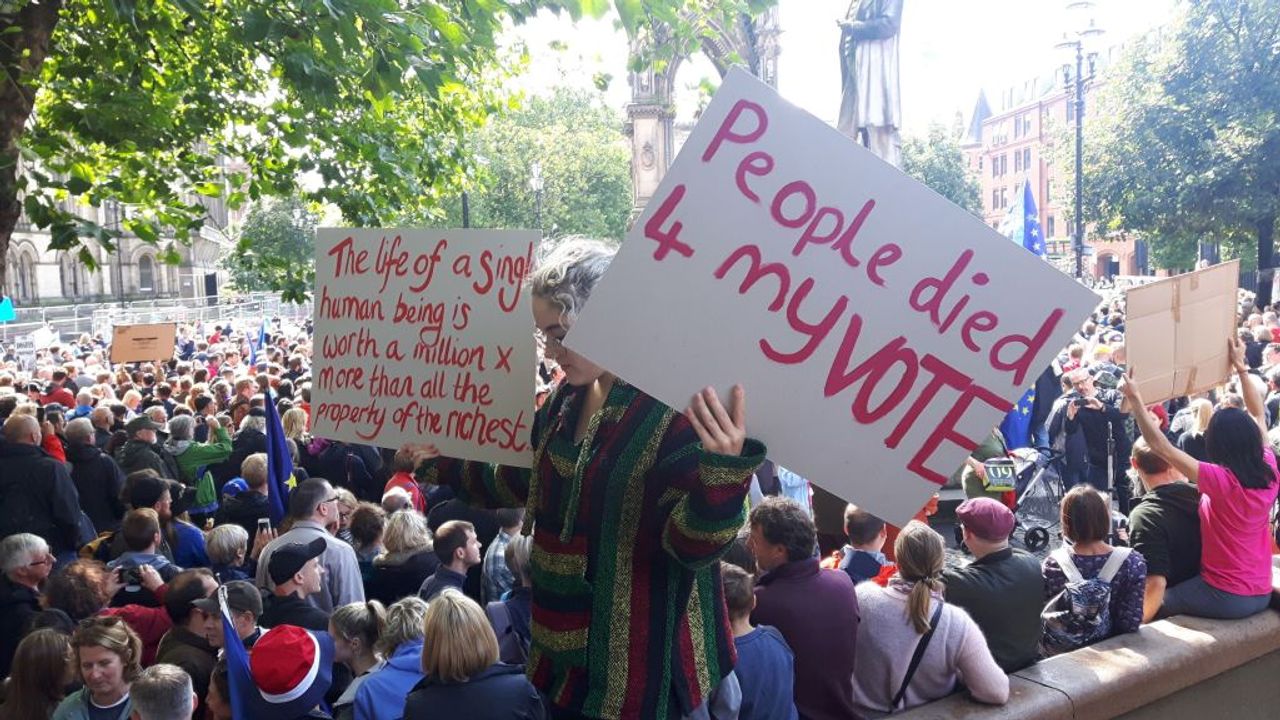 The life of a singl
human being is
worth a million x
more than all the
property of the richest.
People died
4 my VOTE
09